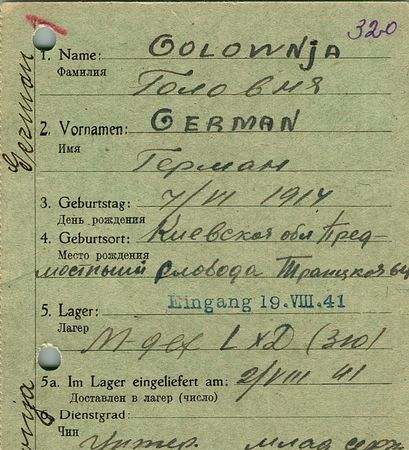 320
German
1. Name: GOLOWNJA
Фамилия Головня
2. Vornamen: GERMAN
Имя Герман
3. Geburtstag: 7/VI 1914
День рождения
4. Geburtsort: Киевская обл Пред-
Место рождения
мостный слобода
5. Lager: Eingang 19. VIII. 41
Лагерь
5a. Im Lager eingeliefert am: 2/VIII 41
Доставлен в лагерь (число)
6. Dienstgrad:
Чин Унтер. млад серж